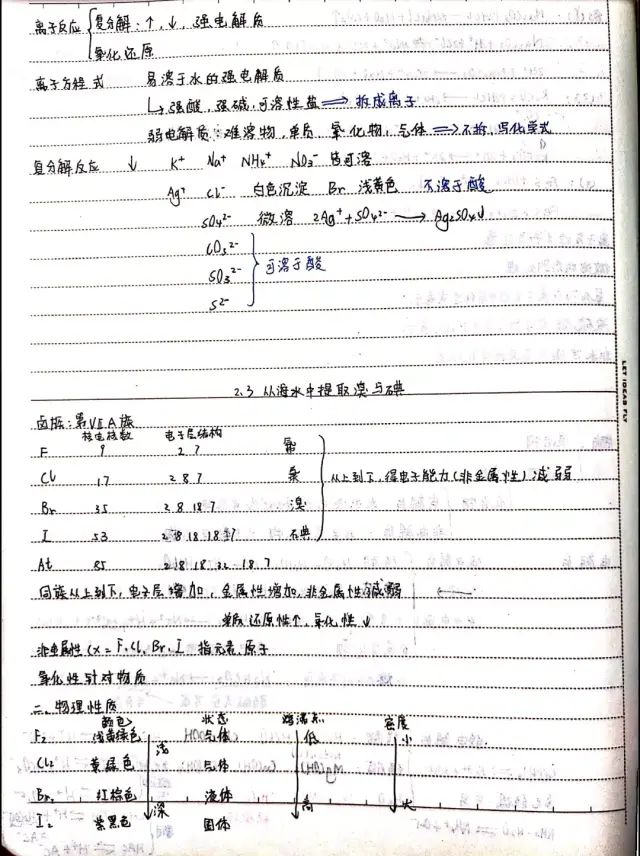 离子反应 { 复分解:↑,↓,弱电解质
氧化还原
离子方程式 易溶于水的强电解质
↳强酸,强碱,可溶性盐 ⟹ 拆成离子
弱电解质,难溶物,单质,氧化物,气体 ⟹ 不拆,写化学式
复分解反应 ↓ K⁺ Na⁺ NH₄⁺ NO₃⁻ 皆可溶
Ag⁺ Cl⁻ 白色沉淀 Br 浅黄色 不溶于酸
SO₄²⁻ 微溶 2Ag⁺+SO₄²⁻ ⟶ Ag₂SO₄↓
CO₃²⁻
SO₃²⁻ } 可溶于酸
S²⁻
2.3 从海水中提取溴与碘
卤族:第VIIA族
核电核数 电子层结构
F 9 2 7 氟
Cl 17 2 8 7 氯
Br 35 2 8 18 7 溴
从上到下,得电子能力(非金属性)减弱
I 53 2 8 18 18 7 碘
At 85 2 8 18 32 18 7
同族从上到下,电子层增加,金属性增加,非金属性减弱
单质还原性↑,氧化性↓
非金属性(X=F,Cl,Br,I 指元素,原子
氧化性针对物质
二、物理性质
颜色 状态 熔沸点 密度
F₂ 浅黄绿色 浅 气体 低 小
Cl₂ 黄绿色 气体
Br₂ 红棕色 深 液体 高 大
I₂ 紫黑色 固体
LET IDEAS FLY